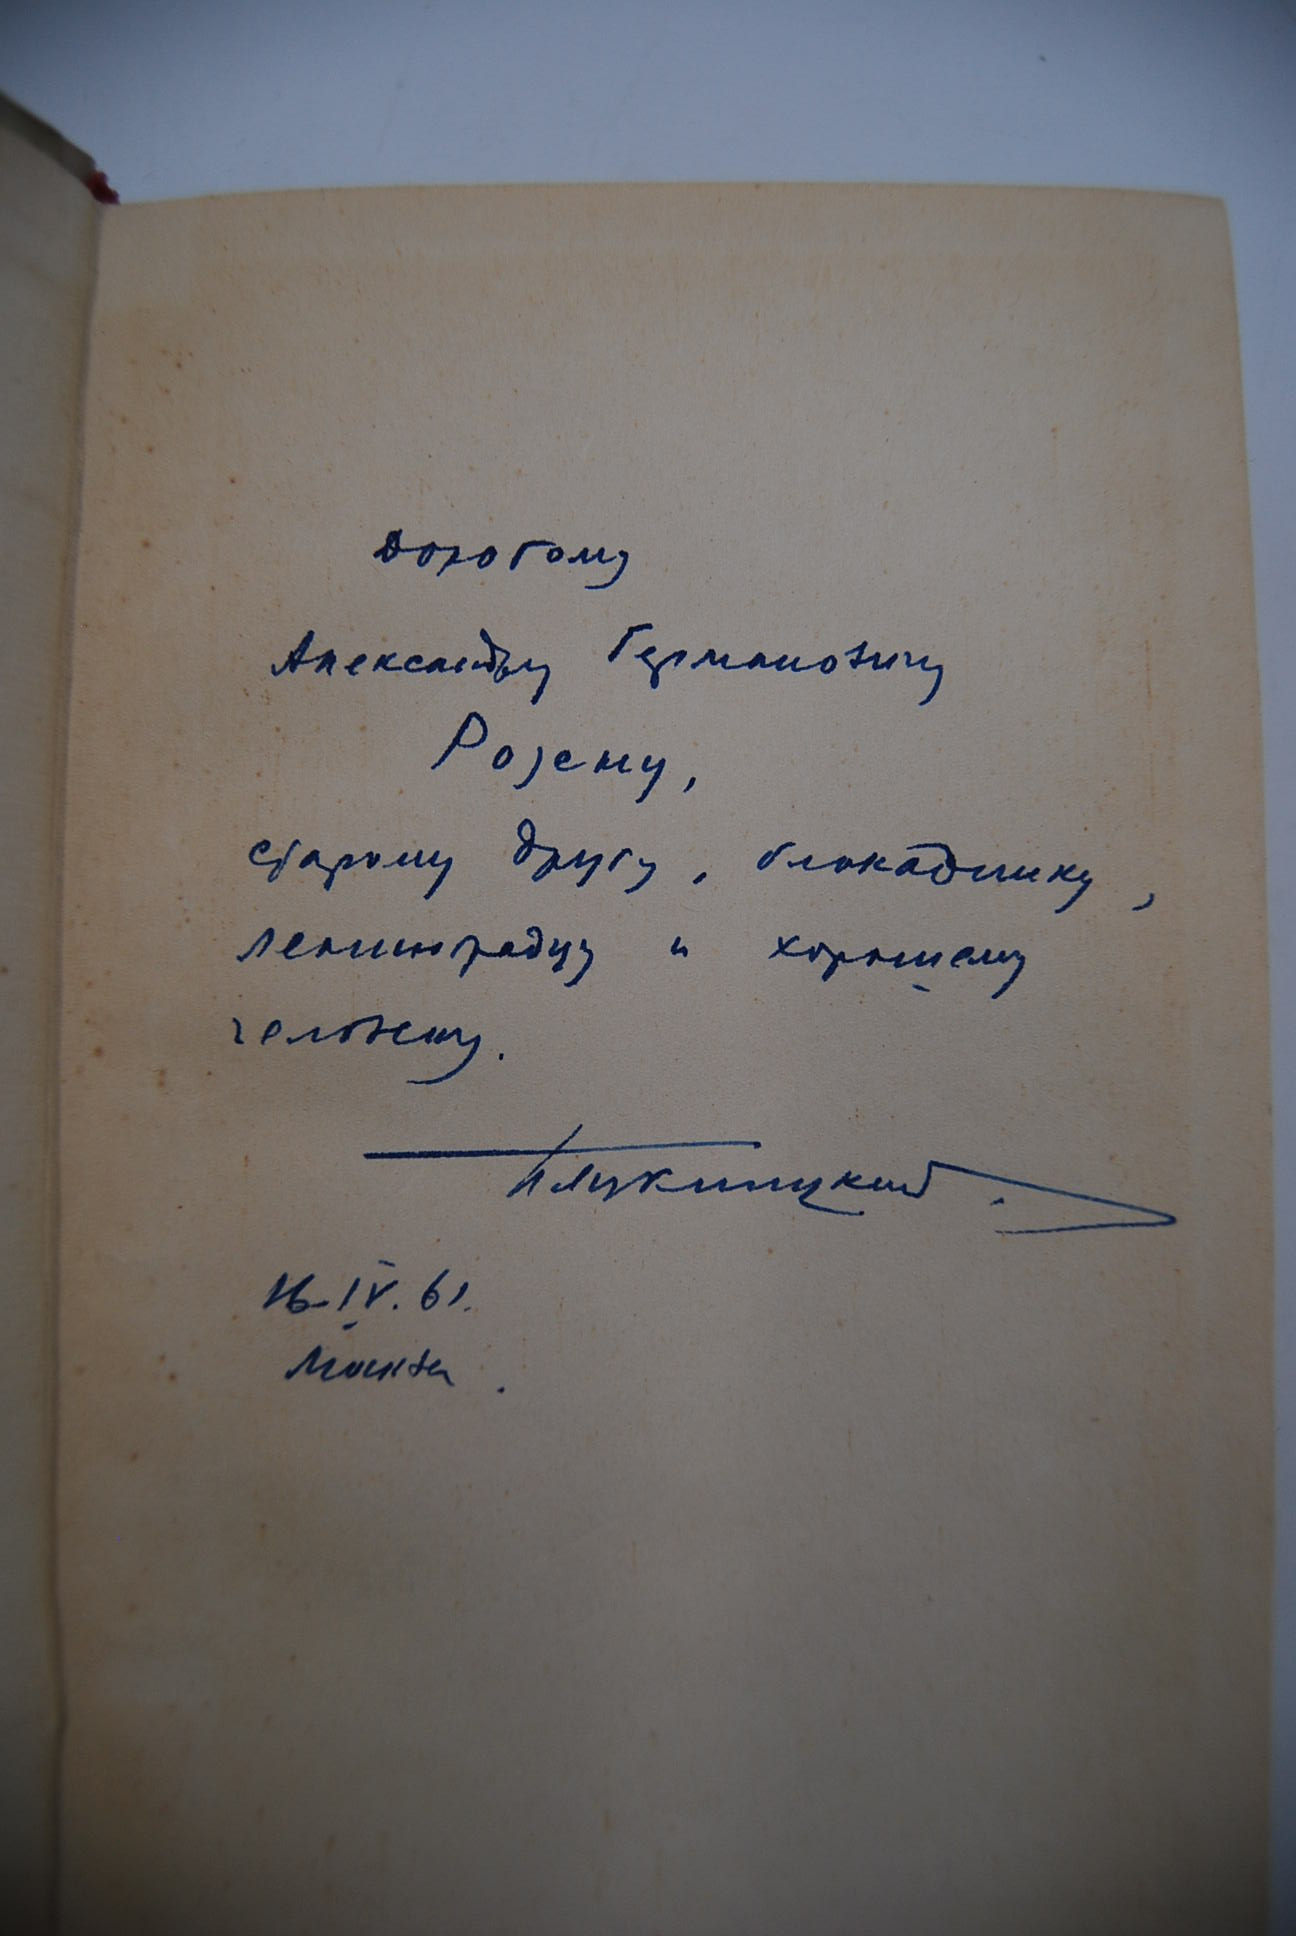 Дорогому
Александру Германовичу
Розену,
старому другу, блокаднику,
ленинградцу и хорошему
человеку.
П Лукницкий.
16-IV. 61.
Москва.